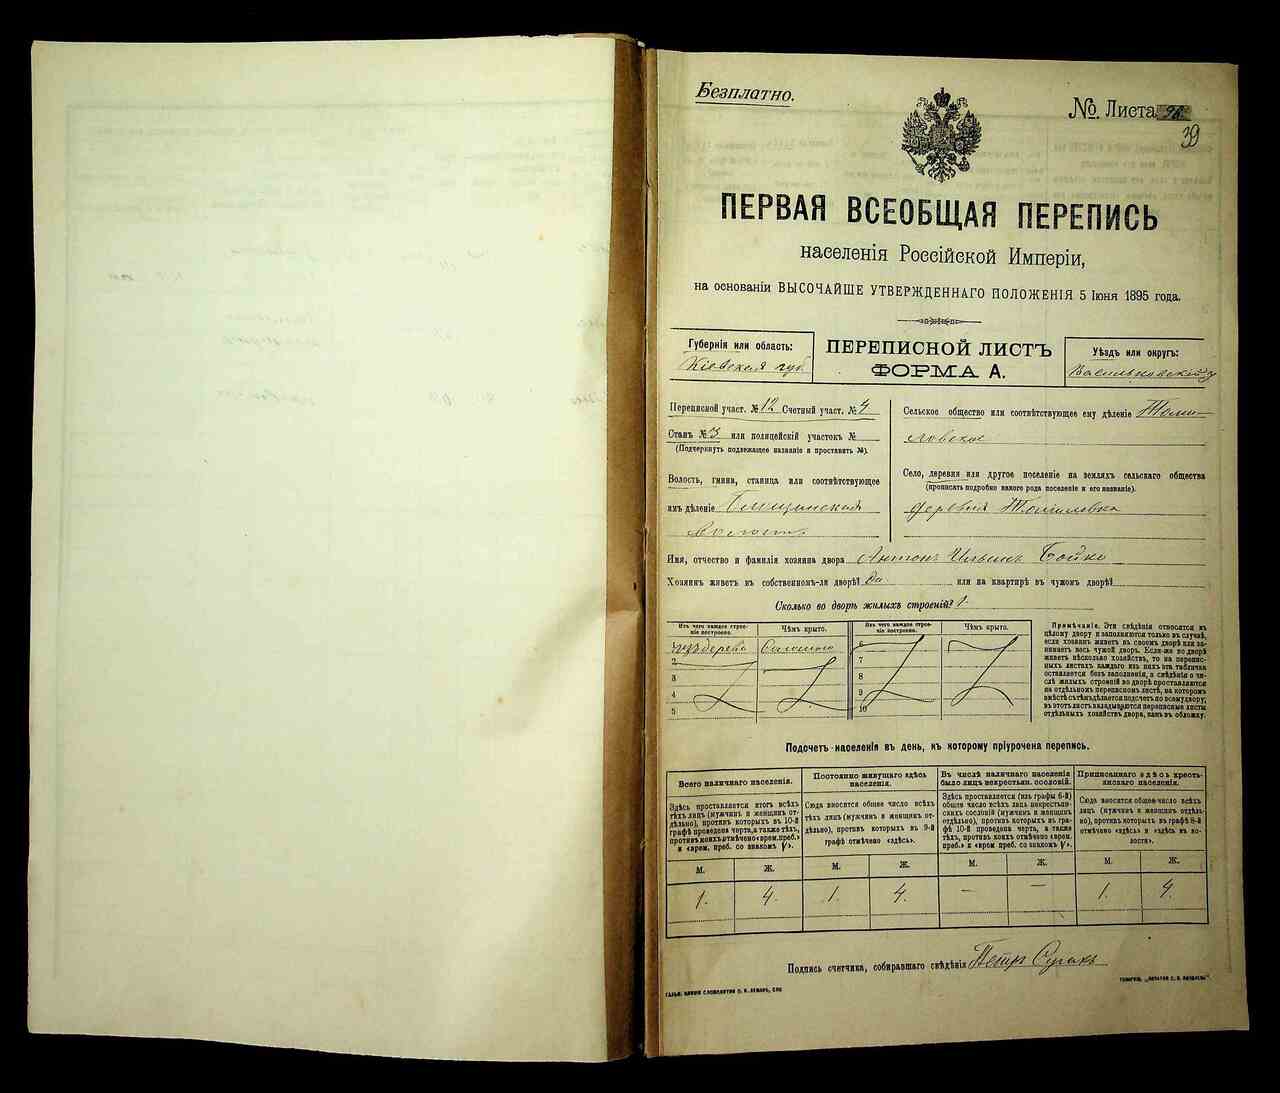 Безплатно.
№ Листа
39
ПЕРВАЯ ВСЕОБЩАЯ ПЕРЕПИСЬ
населенія Россійской Имперіи,
на основаніи ВЫСОЧАЙШЕ УТВЕРЖДЕННАГО ПОЛОЖЕНІЯ 5 Іюня 1895 года.
Губернія или область:
Кіевская губ.
ПЕРЕПИСНОЙ ЛИСТЪ
ФОРМА А.
Уѣздъ или округъ:
Васильковскій у
Переписной участ. № 12 Счетный участ. № 4
Станъ № 3 или полицейскій участокъ №
(Подчеркнуть подлежащее названіе и проставить №).
Волость, гмина, станица или соотвѣтствующее
имъ дѣленіе
волость
Сельское общество или соотвѣтствующее ему дѣленіе Томи-
ловское
Село, деревня или другое поселеніе на земляхъ сельскаго общества
(прописать подробно какого рода поселеніе и его названіе).
деревня Томиловка
Имя, отчество и фамилія хозяина двора Антонъ Ильинъ Бойко
Хозяинъ живетъ въ собственномъ-ли дворѣ? да или на квартирѣ въ чужомъ дворѣ?
Сколько во дворѣ жилыхъ строеній? 1.
Изъ чего каждое строеніе построено.
Чѣмъ крыто.
Изъ чего каждое строеніе построено.
Чѣмъ крыто.
изъ дерева Соломою 6
2 7
3 8
4 9
5 10
Примѣчаніе. Эти свѣдѣнія относятся къ
цѣлому двору и заполняются только въ случаѣ,
если хозяинъ живетъ въ своемъ дворѣ или за-
нимаетъ весь чужой дворъ. Если-же во дворѣ
живетъ нѣсколько хозяйствъ, то на перепис-
ныхъ листахъ каждаго изъ нихъ эта табличка
оставляется безъ заполненія, а свѣдѣнія о чи-
слѣ жилыхъ строеній во дворѣ проставляются
на отдѣльномъ переписномъ листѣ, на которомъ
вмѣстѣ съ тѣмъ дѣлается подсчетъ по всему двору,
въ этотъ листъ вкладываются переписные листы
отдѣльныхъ хозяйствъ двора, какъ въ обложку.
Подсчетъ населенія въ день, къ которому пріурочена перепись.
Всего наличнаго населенія.
Здѣсь проставляется итогъ всѣхъ
тѣхъ лицъ (мужчинъ и женщинъ от-
дѣльно), противъ которыхъ въ 10-й
графѣ проведена черта, а также тѣхъ,
противъ коихъ отмѣчено «врем. преб.»
и «врем. преб. со знакомъ V».
Постоянно живущаго здѣсь
населенія.
Сюда вносится общее число всѣхъ
тѣхъ лицъ (мужчинъ и женщинъ от-
дѣльно), противъ которыхъ въ 9-й
графѣ отмѣчено «здѣсь».
Въ числѣ наличнаго населенія
было лицъ некрестьян. сословій.
Здѣсь проставляется (изъ графы 6-й)
общее число всѣхъ лицъ некрестьян-
скихъ сословій (мужчинъ и женщинъ
отдѣльно), противъ которыхъ въ гра-
фѣ 10-й проведена черта, а также
тѣхъ, противъ коихъ отмѣчено «врем.
преб.» и «врем преб. со знакомъ V».
Приписаннаго здѣсь кресть-
янскаго населенія.
Сюда вносится общее число всѣхъ
лицъ (мужчинъ и женщинъ отдѣль-
но), противъ которыхъ въ графѣ 8-й
отмѣчено «здѣсь» и «здѣсь въ во-
лости».
М. Ж. М. Ж. М. Ж. М. Ж.
1. 4. 1. 4. — — 1. 4.
Подпись счетчика, собиравшаго свѣдѣнія Петръ